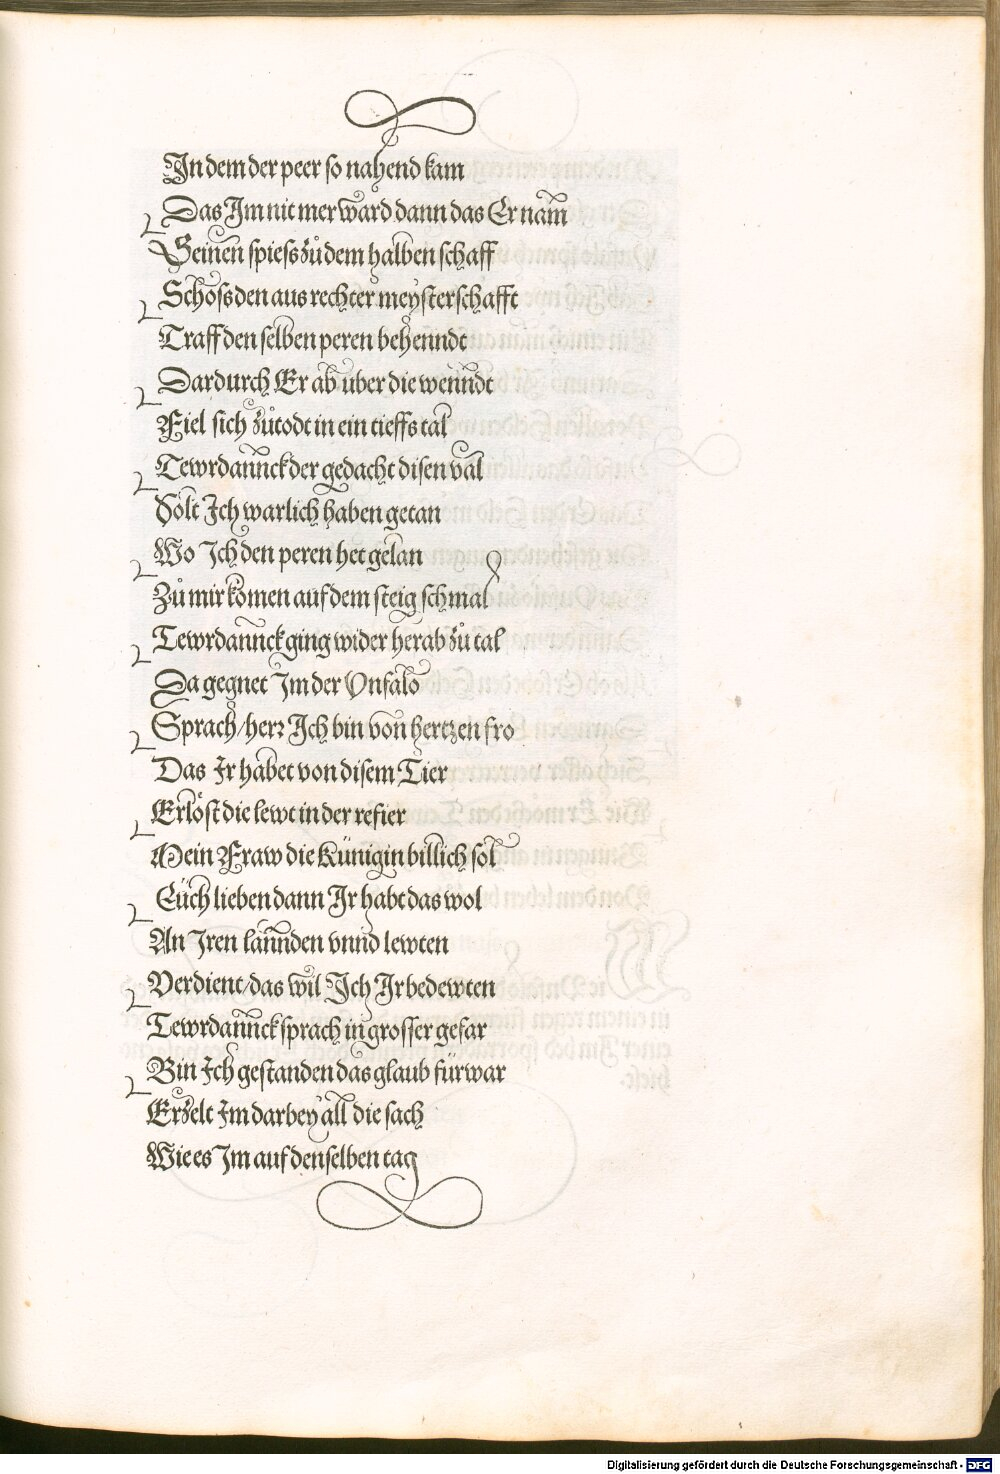 In dem der peer so nahend kam
Das Im nit mer ward dann das Er nam̄
Seinen spiess zů dem halben schafft
Schoss den aus rechter meysterschafft
Traff den selben peren behenndt
Dardurch Er ab uber die wenndt
Fiel sich zů todt in ein tieffs tal
Tewrdannck der gedacht disen val
Solt Ich warlich haben getan
Wo Ich den peren het gelan
Zů mir komen auf dem steig schmal
Tewrdannck ging wider herab zů tal
Da gegnet Im der Vnfalo
Sprach/herr Ich bin von hertzen fro
Das Ir habet von disem Tier
Erlöst die lewt in der refier
Mein Fraw die Künigin billich sol
Eüch lieben dann Ir habt das wol
An Iren lannden vnnd lewten
Verdient/das wil Ich Ir bedewten
Tewrdannck sprach in grosser gefar
Bin Ich gestanden das glaub fürwar
Erzelt Im darbey all die sach
Wie es Im auf denselben tag
Digitalisierung gefördert durch die Deutsche Forschungsgemeinschaft - DFG